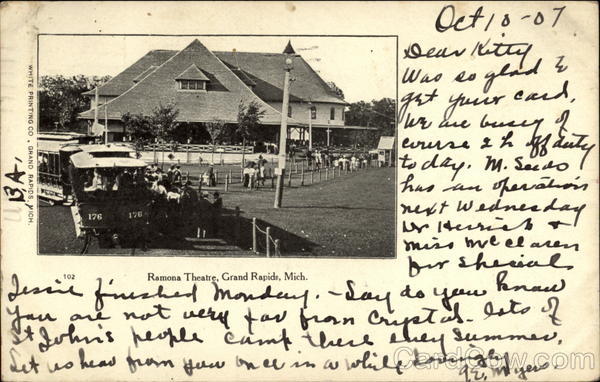 Oct 10-07
Dear Kitty
Was so glad to
get your card.
We are busy of
course 2 h off duty
to day. M. Seeds
has an operation
next Wednesday
Dr Herrick +
Miss McClaren
for Specials
WHITE PRINTING CO., GRAND RAPIDS, MICH
BA,
176 176
102
Ramona Theatre, Grand Rapids, Mich.
Jessie finished Monday. - Say do you know
you are not very far from Crystal. lots of
St John's people camp there every Summer.
Let us hear from you once in a while
A.E. Myers.
CardCow.com